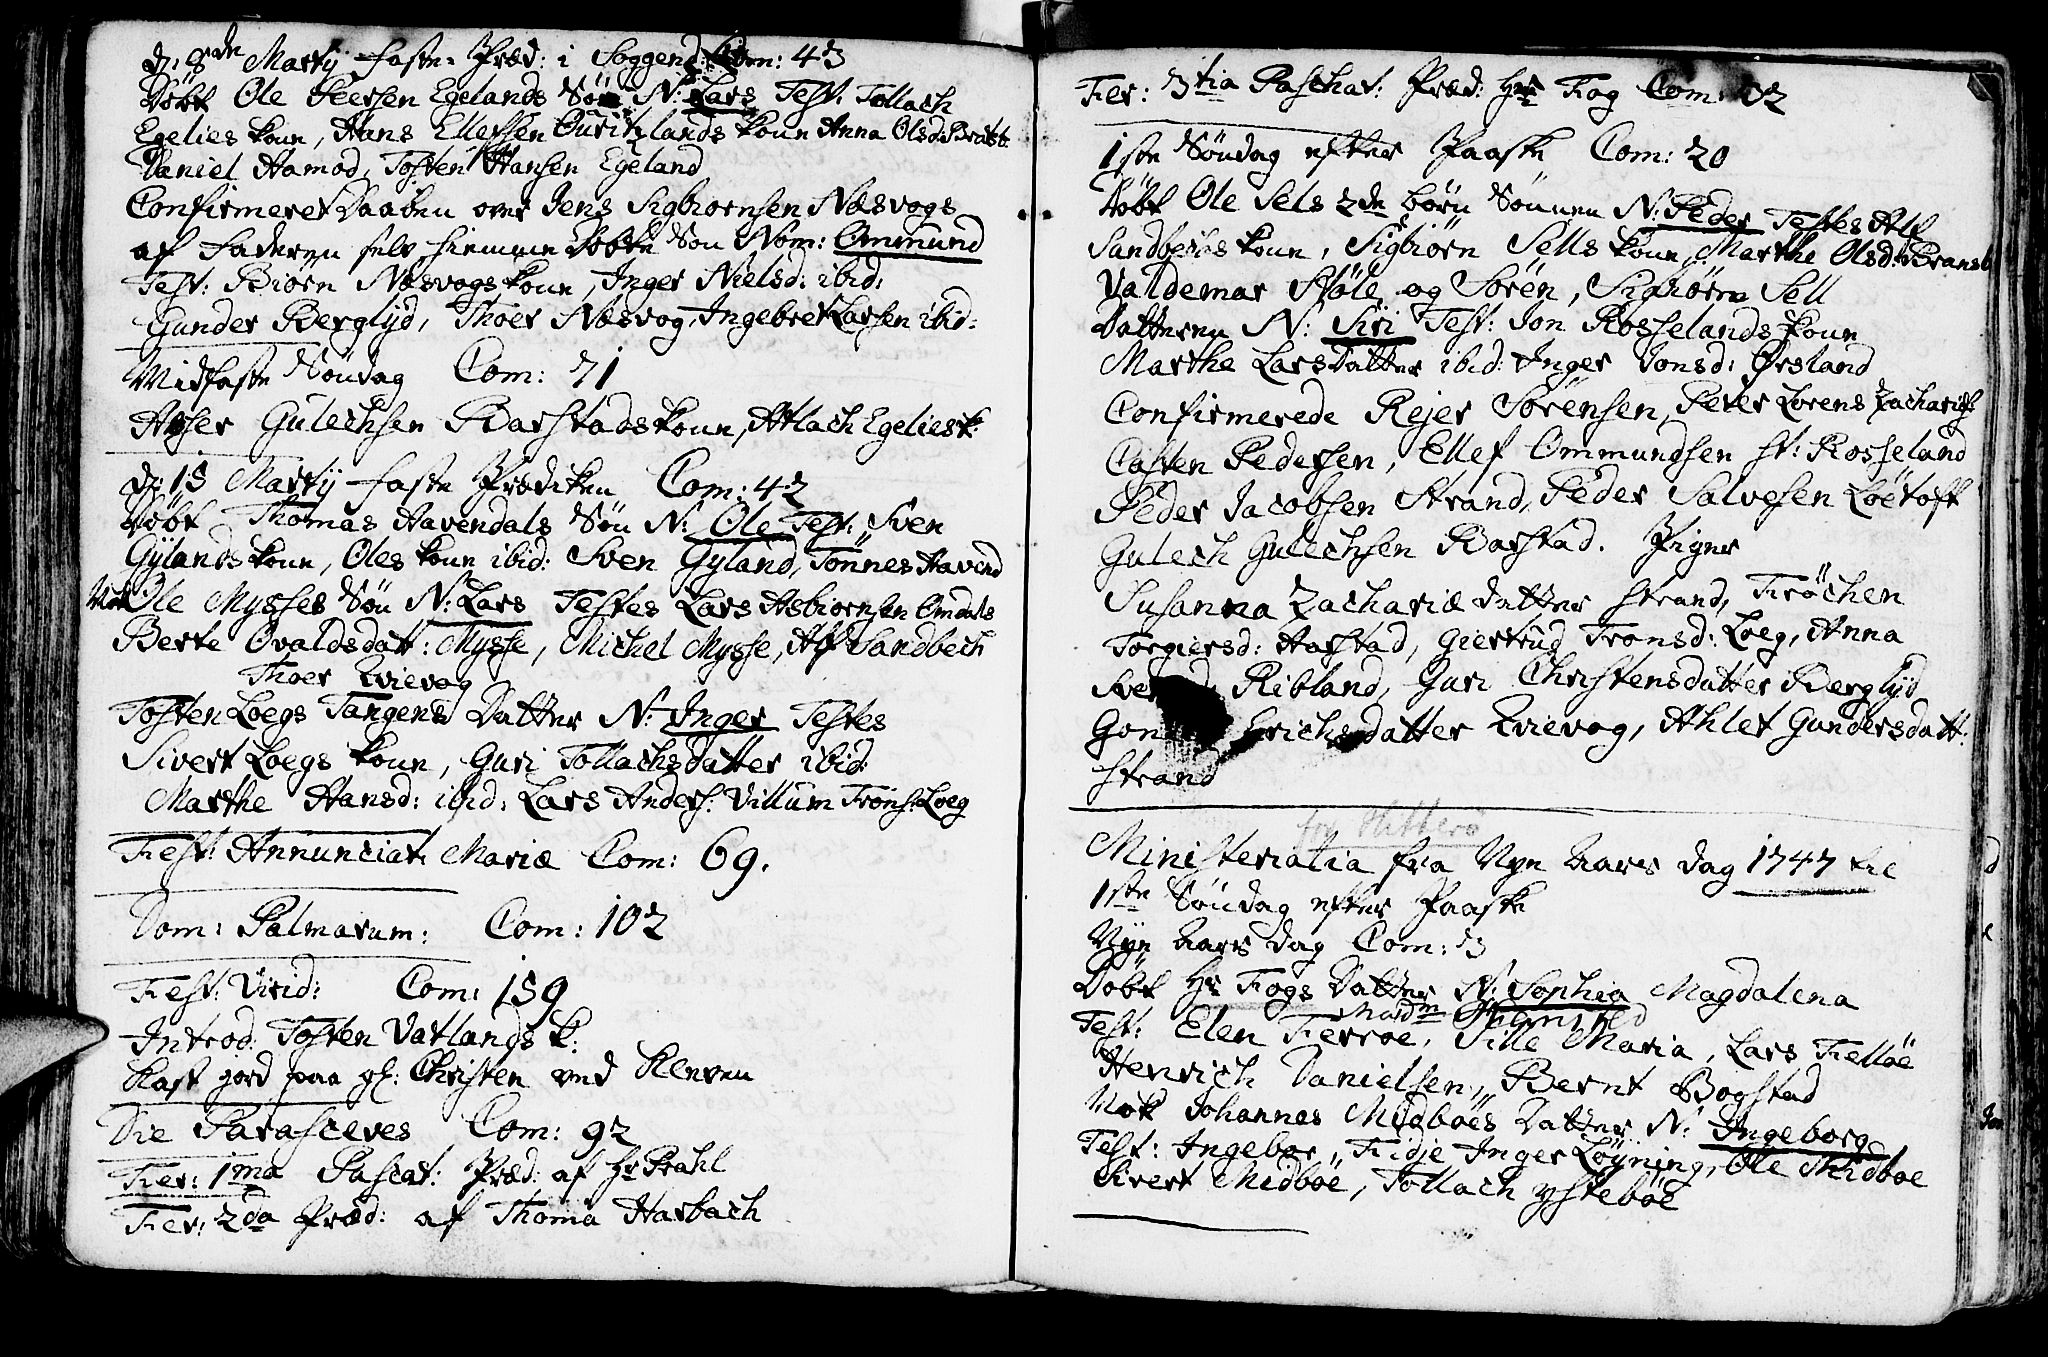 d: 8de Martij faste-Præd: i Soggend: Com: 43
Döbt Ole Peersen Egelands Sön N: Lars Test: Tollach
Egelies kone, Hans Ellefsen kone Anna Olsd:
Daniel Hamod, Tosten Hansen Egeland
Confirmeret Daaben over Jens Sigbiornsen Næsvogs
af Faderen selv hiemme döbte Sön Nom: Ommund
Test: Biörn Næsvogs kone, Inger Nielsd: ibid:
Gunder Berglyd, Thoer Næsvog, Ingebret Larsen ibid:
Midfaste Söndag Com: 71
Gulechsen Barstads kone, Atlach Egelies k:
d: 15 Martij faste Prædiken Com: 42
Döbt Thomas Aavendals Sön N: Ole Test: Sven
Gÿlands kone, Oles kone ibid: Sven Gyland, Tönnes Aavend
Nok Ole Mysses Sön N: Lars Testes Lars Asbiornsen Omdals
Berte Ovaldsdatt: Mysse, Michel Mysse, Alf Sandbech
Thoer Evievog
Tosten Loegs Tangens Datter N: Inger Testes
Sivert Loegs kone, Guri Tollachsdatter ibid:
Marthe Hansd: ibid: Lars Anders: Villum Tröns: Loeg
Fest: Annunciat: Mariæ Com: 69.
Dom: Palmarum: Com: 102
Fest: Virid: Com: 159
Introd: Tosten Vatlands k:
Kast jord paa gl: Christen ved
Die Parasceves Com: 92
Fer: 1ma Pascat: Præd: af Hr Prahl
Fer: 2da Præd: af Thoma Harbach
Fer: 3tia Paschat: Præd: Hr Fog Com:
1ste Söndag efter Paaske Com: 20
Döbt Ole Sels 2de börn Sönnen N: Peder Testes Alf
Sandbechs kone, Sigbiörn Sells kone, Marthe Olsd:
Valdemar Stöle, og Sören, Sigbiörn Sell
Datteren N: Siri Test: Jon Rosselands kone
Marthe Larsdatter ibid: Inger Jonsd: Örsland
Confirmerede Rejer Sörensen, Peter Lorens Zacharies:
Casten Pedersen, Ellef Ommundsen st: Rosseland
Peder Jacobsen Strand, Peder Salvesen Löetoft
Gulech Gulechsen Barstad. Piger
Susanna Zachariæ datter Strand, Tröchen
Torgiersd: Harstad, Giertrud Tronsd: Loeg, Anna
Ribland, Guri Christensdatter Berglyd
Erichsdatter Evievog, Ahlet Gundersdatt:
Strand
for Hitterö
Ministerialia fra Nye Aars dag 1747 til
1ste Söndag efter Paaske
Nye Aars dag Com: 3
Döbt Hr Fogs Datter N: Sophia Magdalena
Test: Elen Fierroe, Sille Maria, Lars Fielloe
Henrich Danielsen, Bernt Bogstad
Nok Johannes Midboes Datter N: Ingeborg
Test: Ingebor, Fidje Inger Löyning, Ole Midboe
Sivert Midböe, Tollach ysteböe